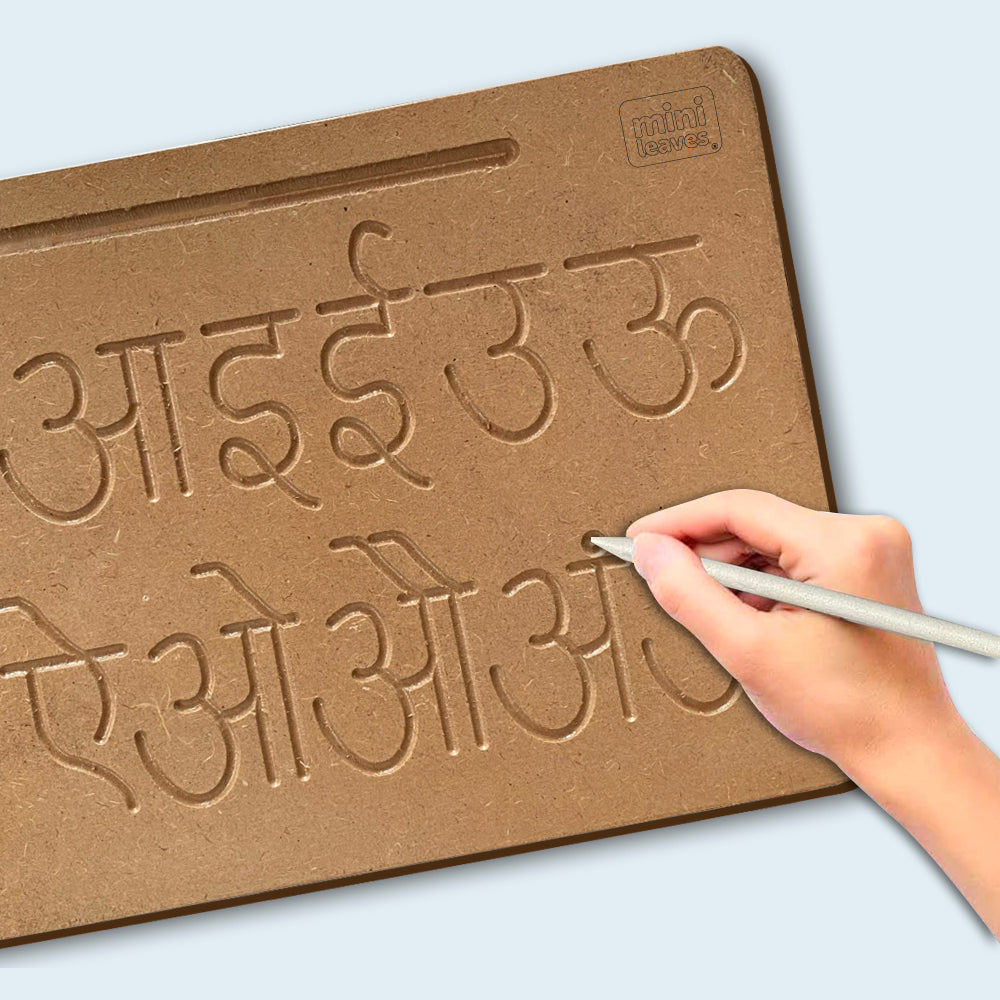 mini
leaves
आ इ ई उ ऊ
ऐ ओ औ अं